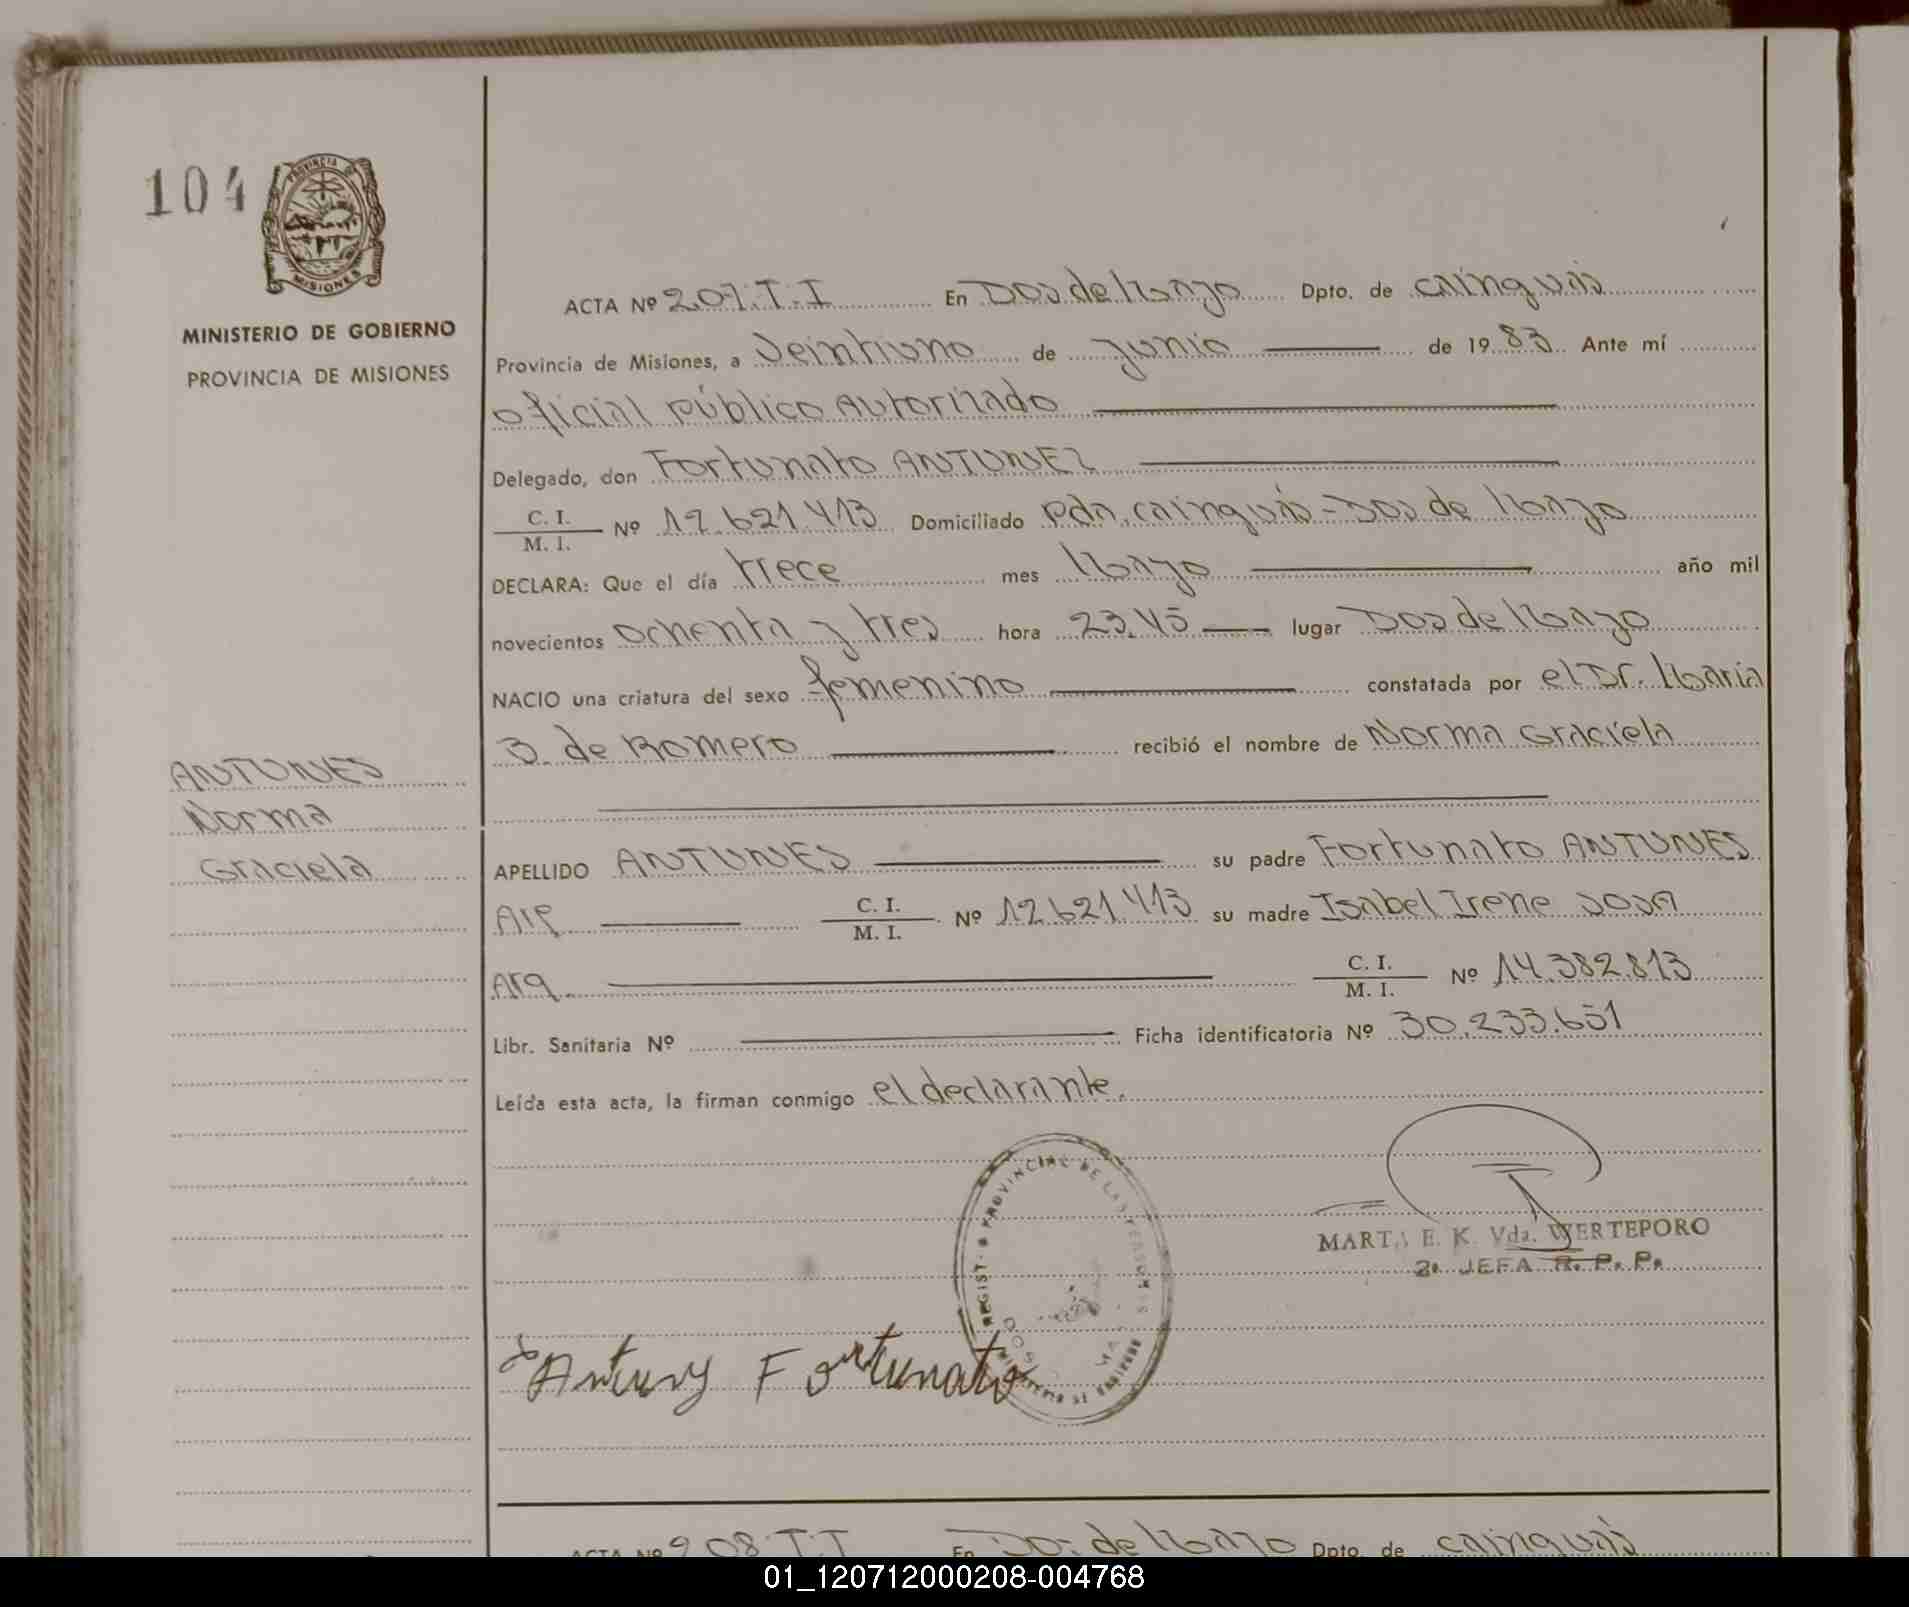 104
PROVINCIA DE
MISIONES
MINISTERIO DE GOBIERNO
PROVINCIA DE MISIONES
ACTA Nº 207.T.I En Dos de Mayo Dpto. de Cainguás
Provincia de Misiones, a Veintiuno de Junio de 1983 Ante mí
Oficial Público Autorizado
Delegado, don Fortunato ANTUNEZ
C. I.
M. I.
Nº 12.621.413 Domiciliado Pdn. Cainguás - Dos de Mayo
DECLARA: Que el día trece mes Mayo año mil
novecientos ochenta y tres hora 23,45 lugar Dos de Mayo
NACIO una criatura del sexo femenino constatada por el Dr. Maria
B. de Romero recibió el nombre de Norma Graciela
ANTUNES
Norma
Graciela
APELLIDO ANTUNES su padre Fortunato ANTUNES
Arg C. I.
M. I.
Nº 12.621.413 su madre Isabel Irene SOSA
Arg C. I.
M. I.
Nº 14.382.813
Libr. Sanitaria Nº Ficha identificatoria Nº 30.233.651
Leída esta acta, la firman conmigo el declarante.
REGIST. PROVINCIAL DE LAS PERSONAS
DOS MA
MINISTERIO DE GOBIERNO
MARTA E. K. Vda. WERTEPORO
2a. JEFA R. P. P.
Antunes Fortunato
ACTA Nº 208.T.I En Dos de Mayo Dpto. de Cainguás
01_120712000208-004768